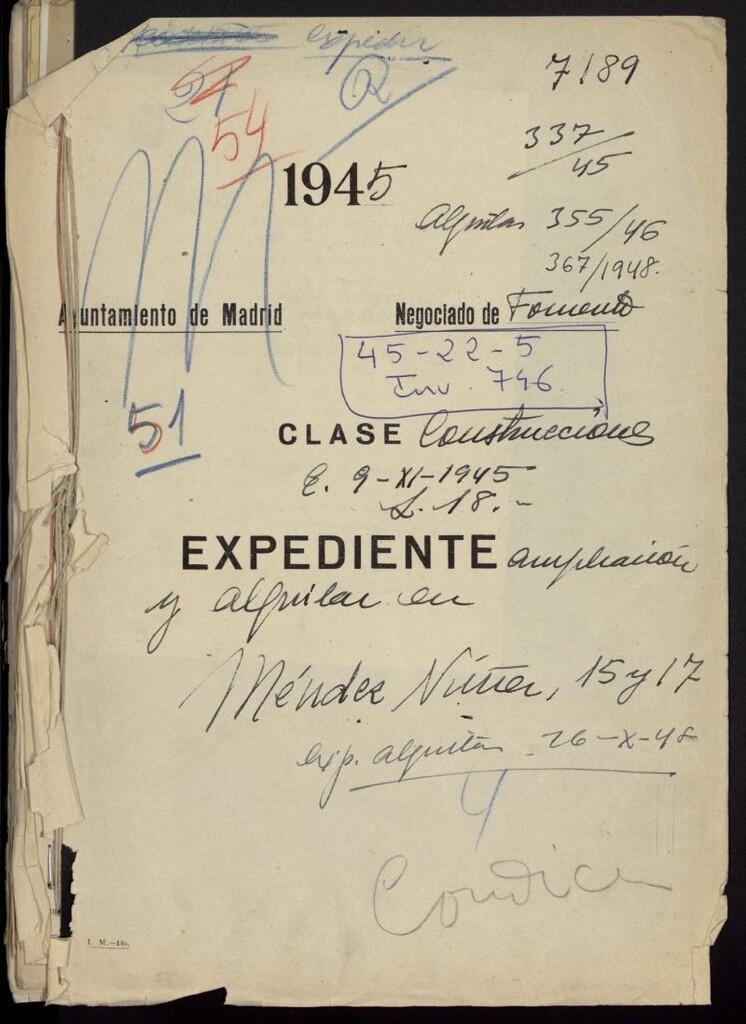 expedir
54
R
54
7189
337/45
1945
M
Alquilar 355/46
367/1948.
Ayuntamiento de Madrid
Negociado de Fomento
45-22-5
Inv. 746
51
CLASE Construcciones
E. 9-XI-1945
L. 18.-
EXPEDIENTE ampliación
y alquilar en
Méndez Núñez, 15 y 17
exp. alquilar 26-X-48
4
I. M.—146.